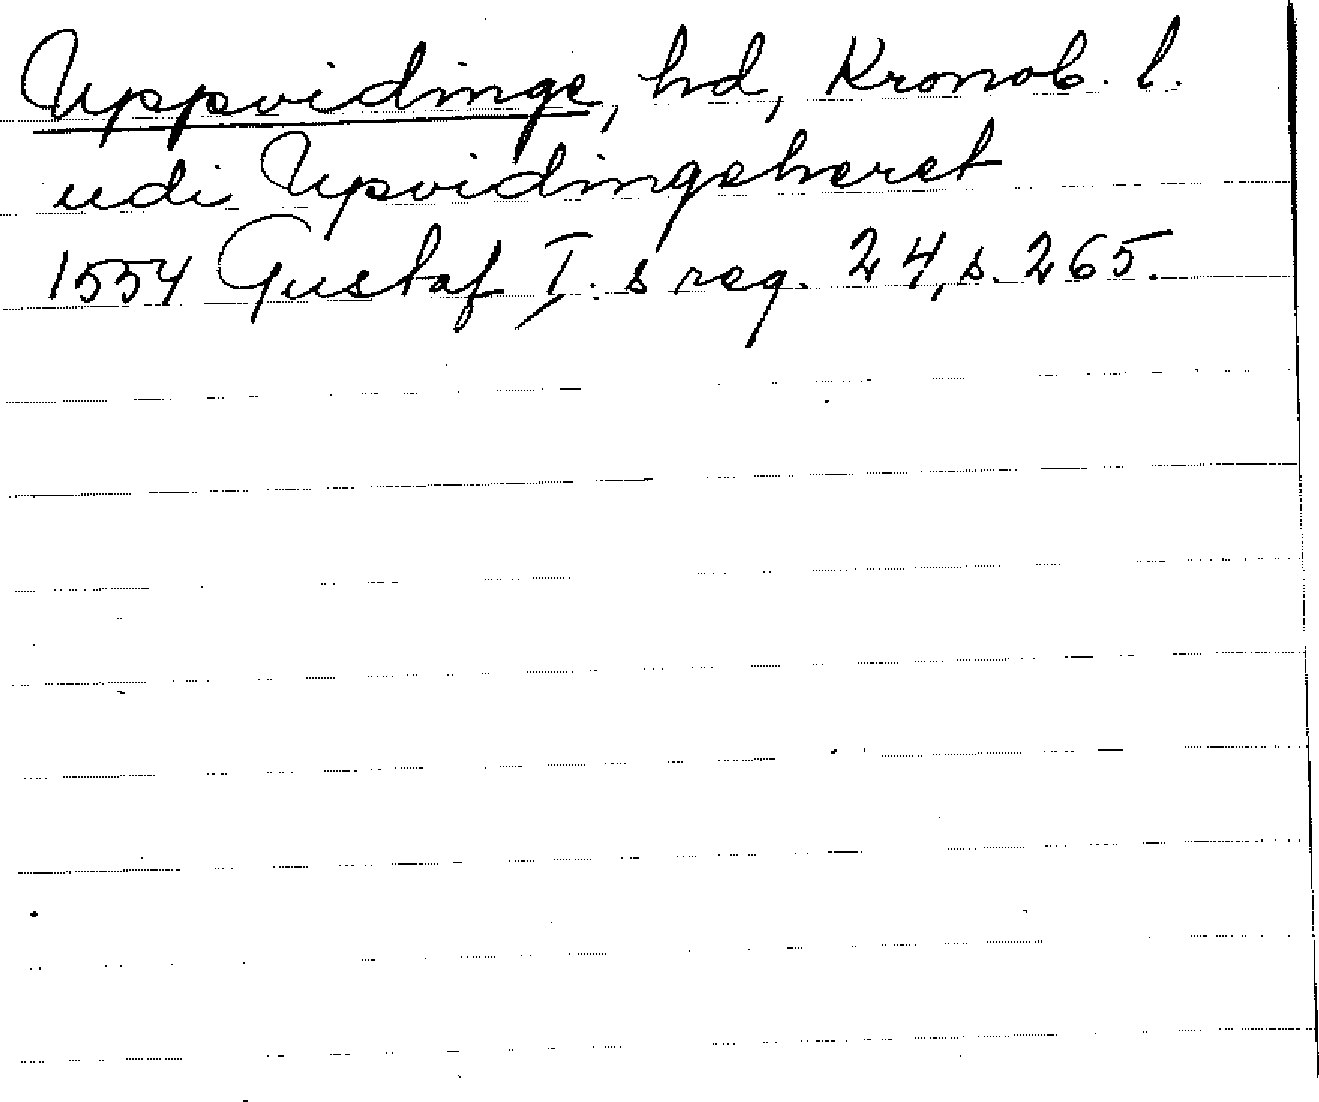 Uppvidinge, hd, Kronob. l.
udi Upvidingeheret
1554 Gustaf I.s reg. 24, s. 265.